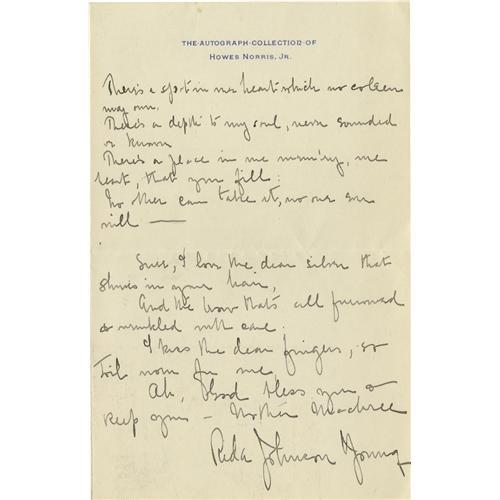 THE·AUTOGRAPH·COLLECTION·OF
HOWES NORRIS, JR.
There's a spot in me heart which no colleen
may own.
There's a depth to my soul, never sounded
or known
There's a place in me memory, me
heart, that you fill:
No other can take it, no one ever
will —
Sure, I love the dear silver that
shines in your hair,
And the brow that's all furrowed
& wrinkled with care.
I kiss the dear fingers, so
toil worn for me,
Ah, God bless you &
keep you - Mother Machree
Rida Johnson Young